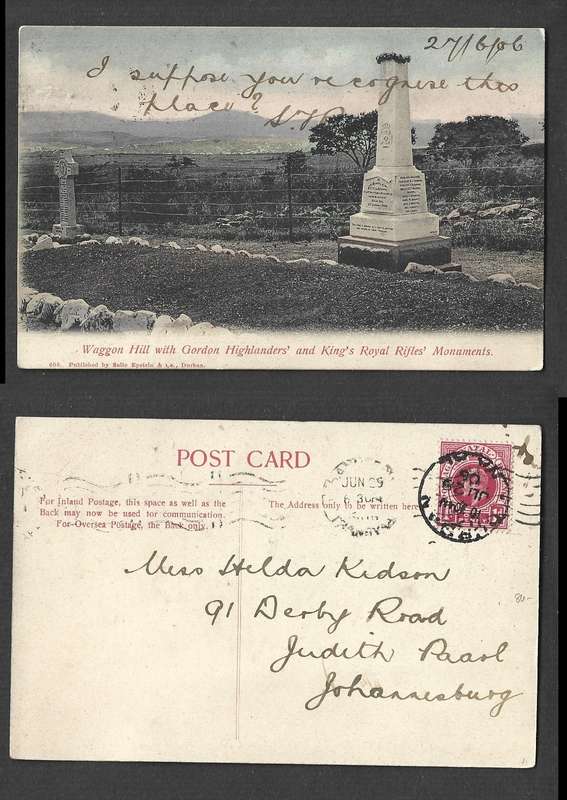 27/6/06
I suppose you recognise this
place?
Waggon Hill with Gordon Highlanders' and King's Royal Rifles' Monuments.
Published by Sallo Epstein & Co., Durban.
POST CARD
For Inland Postage, this space as well as the
Back may now be used for communication.
For Oversea Postage, the Back only.
The Address only to be written here
JUN 29
6 30
Miss Hilda Kidson
91 Derby Road
Judith Paarl
Johannesburg